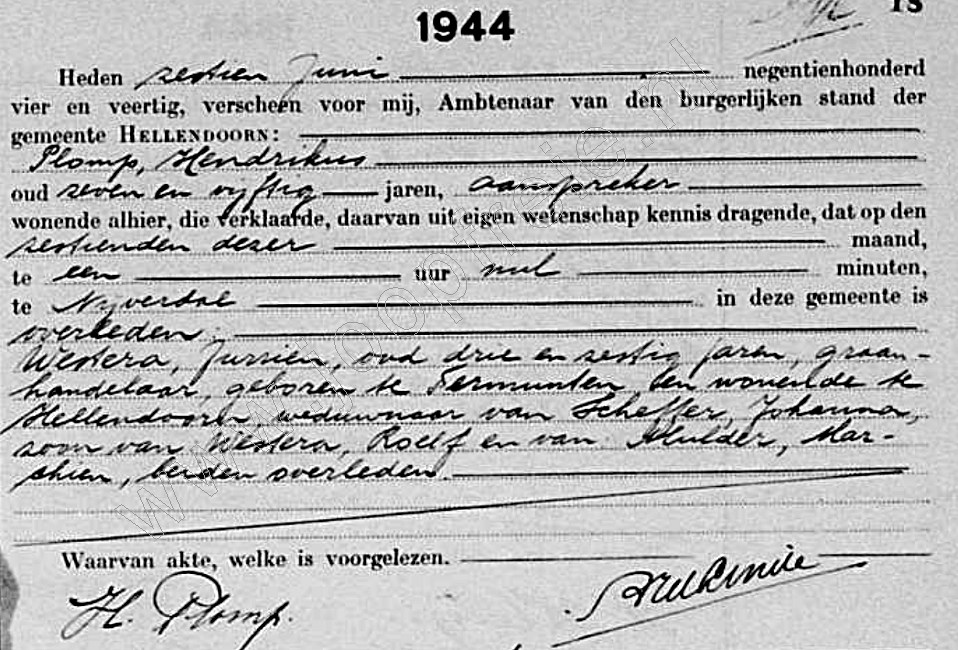 1944
Heden zestien Juni negentienhonderd
vier en veertig, verscheen voor mij, Ambtenaar van den burgerlijken stand der
gemeente HELLENDOORN:
Plomp, Hendrikus
oud zeven en vijftig jaren, aanspreker
wonende alhier, die verklaarde, daarvan uit eigen wetenschap kennis dragende, dat op den
zestienden dezer maand,
te een uur nul minuten,
te Nijverdal in deze gemeente is
overleden:
Westera, Jurrien, oud drie en zestig jaren, graan-
handelaar, geboren te Termunten en wonende te
Hellendoorn, weduwnaar van Scheffer, Johanna,
zoon van Westera, Roelf en van Mulder, Mar-
chien, beiden overleden.
Waarvan akte, welke is voorgelezen.
H. Plomp.